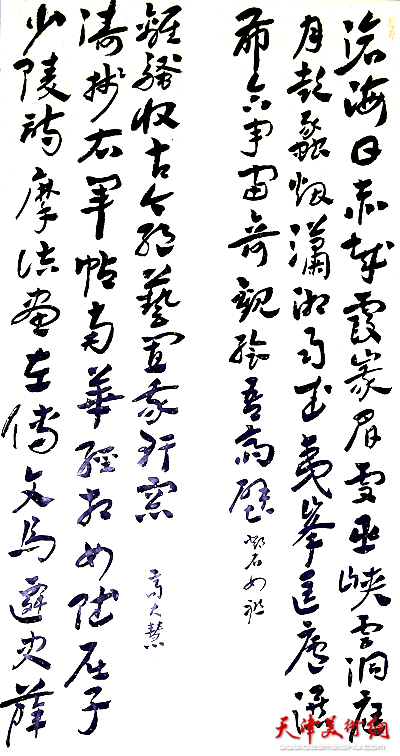 滄海日赤城霞峩眉雪巫峽雲洞庭
月彭蠡烟瀟湘雨武夷峯匡廬瀑
布合宇宙奇觀繪吾齋壁
鄧石如聯
少陵詩摩詰畫左傳文馬遷史薛
濤牋右軍帖南華經相如賦屈子
離騷收古今絕藝置我軒窗
高大慧
天津美术网